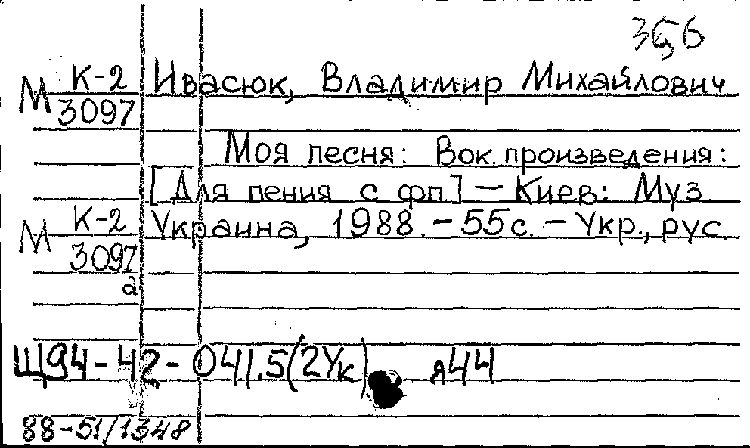 М К-2 Ивасюк, Владимир Михайлович
3097
Моя песня: Вок. произведения:
[Для пения с фп.] – Киев: Муз.
М К-2 Украина, 1988. – 55 с. – Укр., рус.
3097
а
Щ94-42-041.5(2Ук) я44
88-51/1348